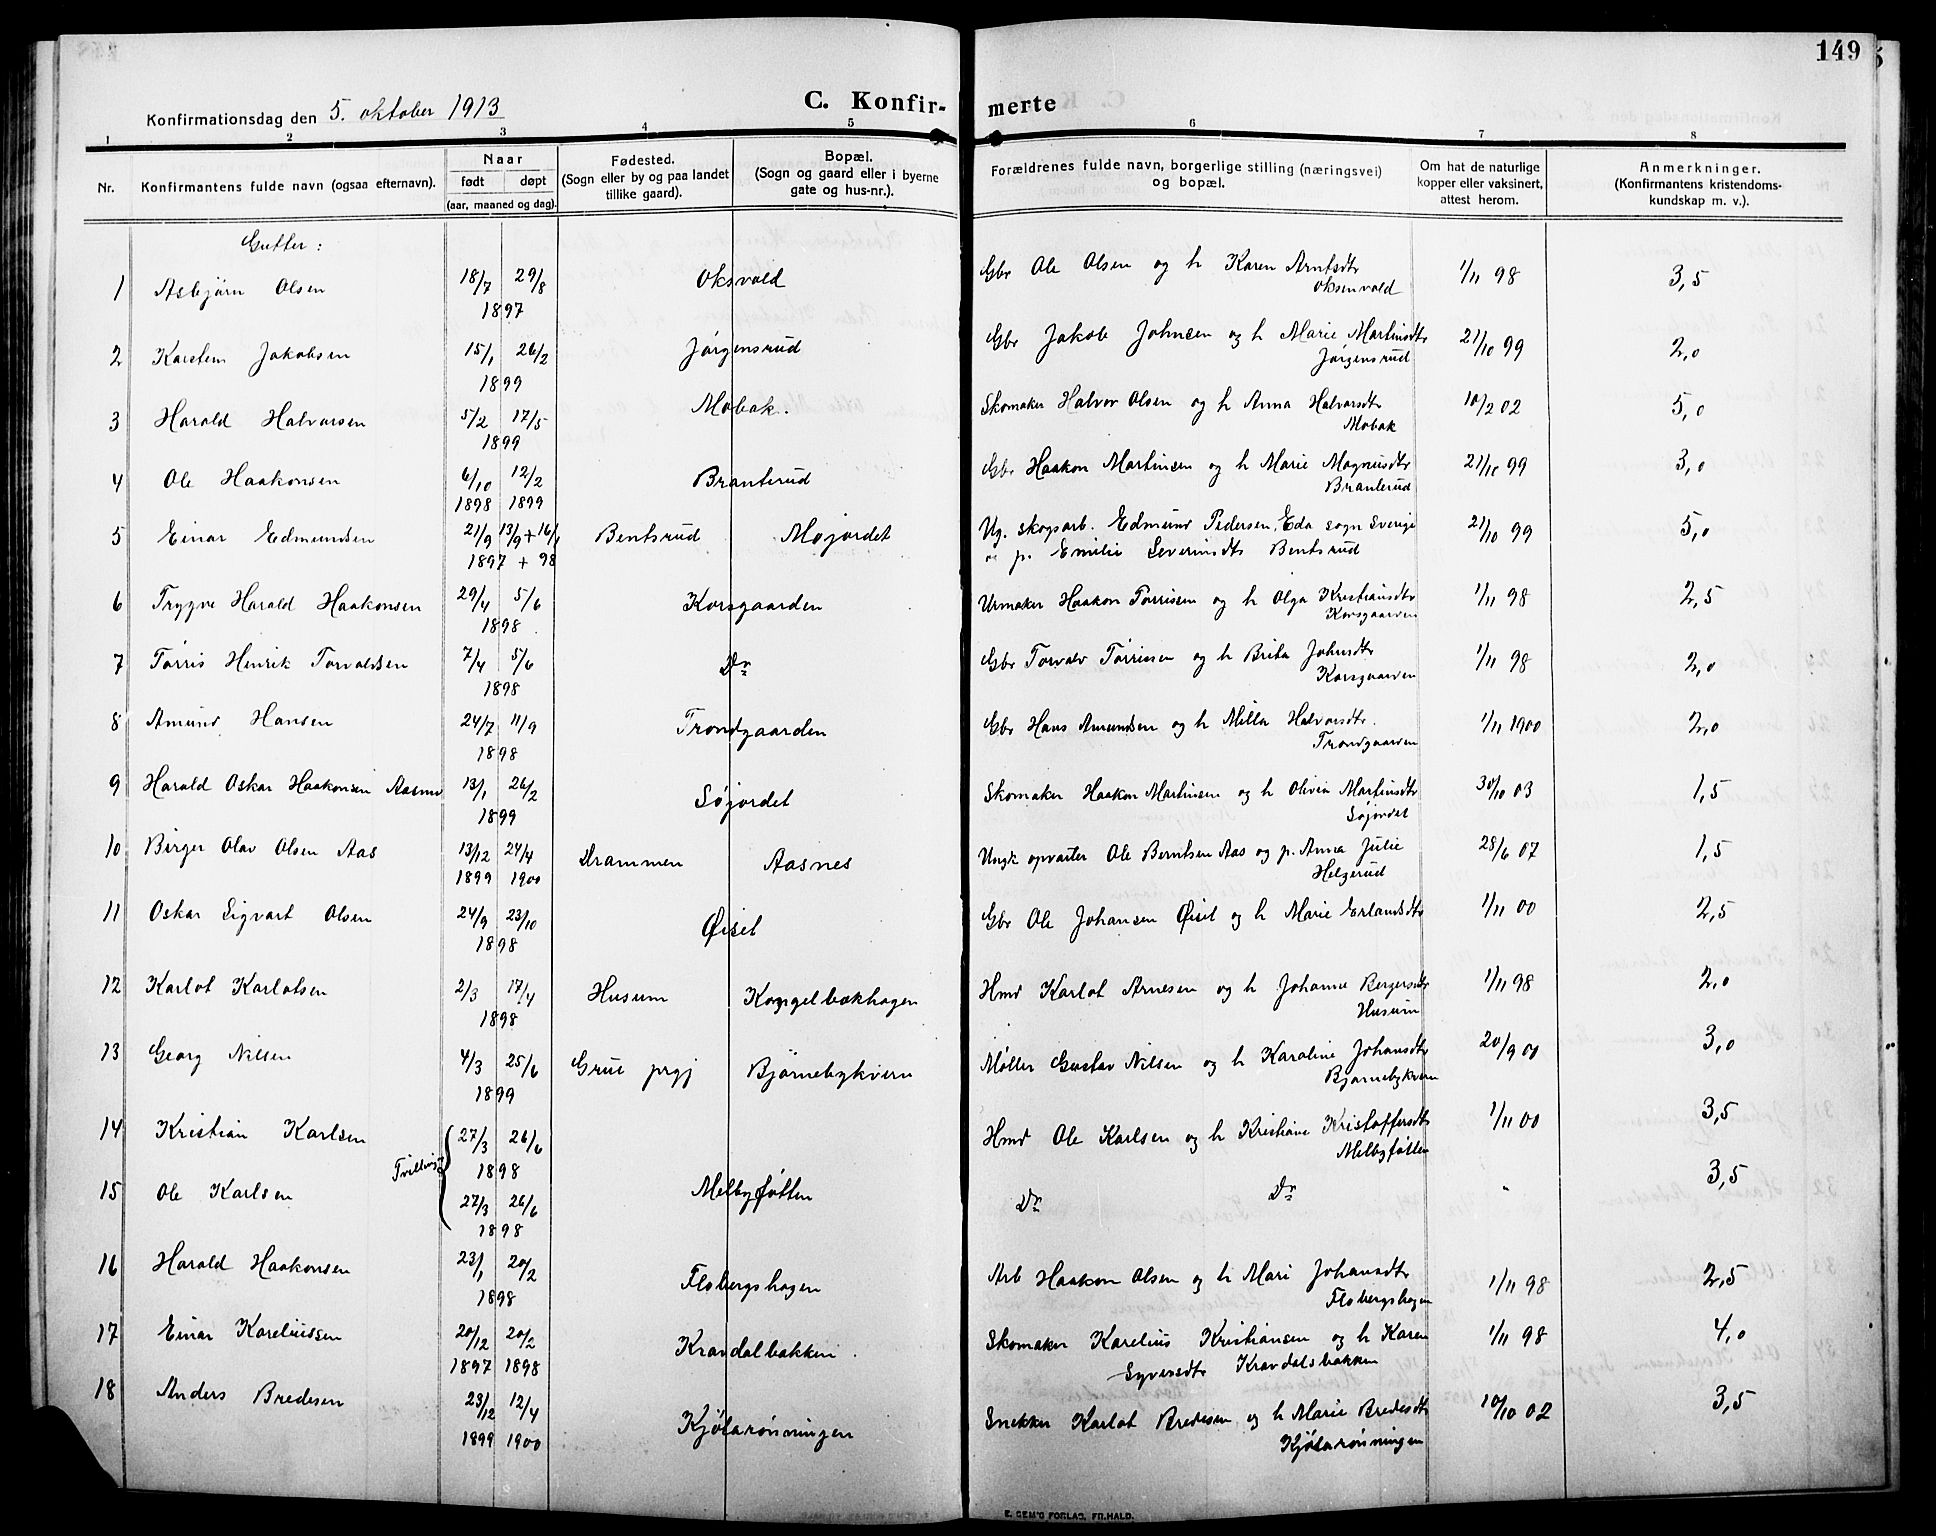 149
Konfirmationsdag den 5. oktober 1913
C. Konfir-
merte
1 2 3 4 5 6 7 8
Nr.
Konfirmantens fulde navn (ogsaa efternavn).
Naar
født døpt
(aar, maaned og dag).
Fødested.
(Sogn eller by og paa landet
tillike gaard).
Bopæl.
(Sogn og gaard eller i byerne
gate og hus-nr.).
Forældrenes fulde navn, borgerlige stilling (næringsvei)
og bopæl.
Om hat de naturlige
kopper eller vaksinert,
attest herom.
Anmerkninger.
(Konfirmantens kristendoms-
kundskap m. v.).
Gutter:
1 Asbjörn Olsen 18/7 29/8 Oksvold Gbr Ole Olsen og h Karen Arntsdtr 1/11 98 3,5
1897 Oksenvold
2 Karsten Jakobsen 15/1 26/2 Jörgensrud Gbr Jakob Johnsen og h Marie Martinsdtr 21/10 99 2,0
1899 Jörgensrud
3 Harald Halvorsen 5/2 17/5 Mobak. Skomaker Halvor Olsen og h Anna Halvorsdtr 10/2 02 5,0
1899 Mobak
4 Ole Haakonsen 6/10 12/2 Branterud Gbr Haakon Martinsen og h Marie Magnusdtr 21/10 99 3,0
1898 1899 Branterud
5 Einar Edmundsen 21/9 13/9 + 16/1 Bentsrud Mojordet Ug. skogsarb. Edmund Pedersen, Eda sogn Sverige 21/10 99 5,0
1897 + 98 og p. Emilie Severinsdtr Bentsrud
6 Trygve Harald Haakonsen 29/4 5/6 Korsgaarden Urmaker Haakon Törrisen og h Olga Kristiansdtr 1/11 98 2,5
1898 Korsgaarden
7 Törris Henrik Torvaldsen 7/4 5/6 Do Gbr Torvald Törrisen og h Brita Johnsdtr 1/11 98 2,0
1898 Korsgaarden
8 Amund Hansen 24/7 11/9 Trondgaarden Gbr Hans Amundsen og h Milla Halvorsdtr. 1/11 1900 2,0
1898 Trondgaarden
9 Harald Oskar Haakonsen Aasmo 13/1 26/2 Søjordet Skomaker Haakon Martinsen og h Olivia Martinsdtr 30/10 03 1,5
1899 Søjordet
10 Birger Olav Olsen Aas 13/12 24/4 Drammen Aasnes Ungk opvarter Ole Berntsen Aas og p. Anna Julie 28/6 07 1,5
1899 1900 Helgerud
11 Oskar Sigvart Olsen 24/9 23/10 Øiset Gbr Ole Johansen Øiset og h Marie Erlandsdtr 1/11 00 2,5
1898
12 Karlot Karlotsen 2/3 17/4 Husum Kongelbækhagen Hmd Karlot Arnesen og h Johanne Bergersdtr 1/11 98 2,0
1898 Husum
13 Georg Nilsen 4/3 25/6 Grue prgj Björnebykvern Møller Gustav Nilsen og h Karoline Johansdtr 20/9 00 3,0
1899 Bjørnebykvern
14 Kristian Karlsen 27/3 26/6 Hmd Ole Karlsen og h Kristiane Kristoffersdtr 1/11 00 3,5
Tvilling 1898 Melbyføtten
15 Ole Karlsen 27/3 26/6 Melbyføtten Do Do " 3,5
1898
16 Harald Haakonsen 23/1 20/2 Flobergshagen Arb Haakon Olsen og h Mari Johansdtr 1/11 98 2,5
1898 Flobergshagen
17 Einar Kareliussen 20/12 20/2 Kravdalbakken. Skomaker Karelius Kristiansen og h Karen 1/11 98 4,0
1897 1898 Syversdtr Kravdalsbakken
18 Anders Bredesen 23/12 12/4 Kjölarönningen Snekker Karlot Bredesen og h Marie Bredesdtr 10/10 02 3,5
1899 1900 Kjölarönningen